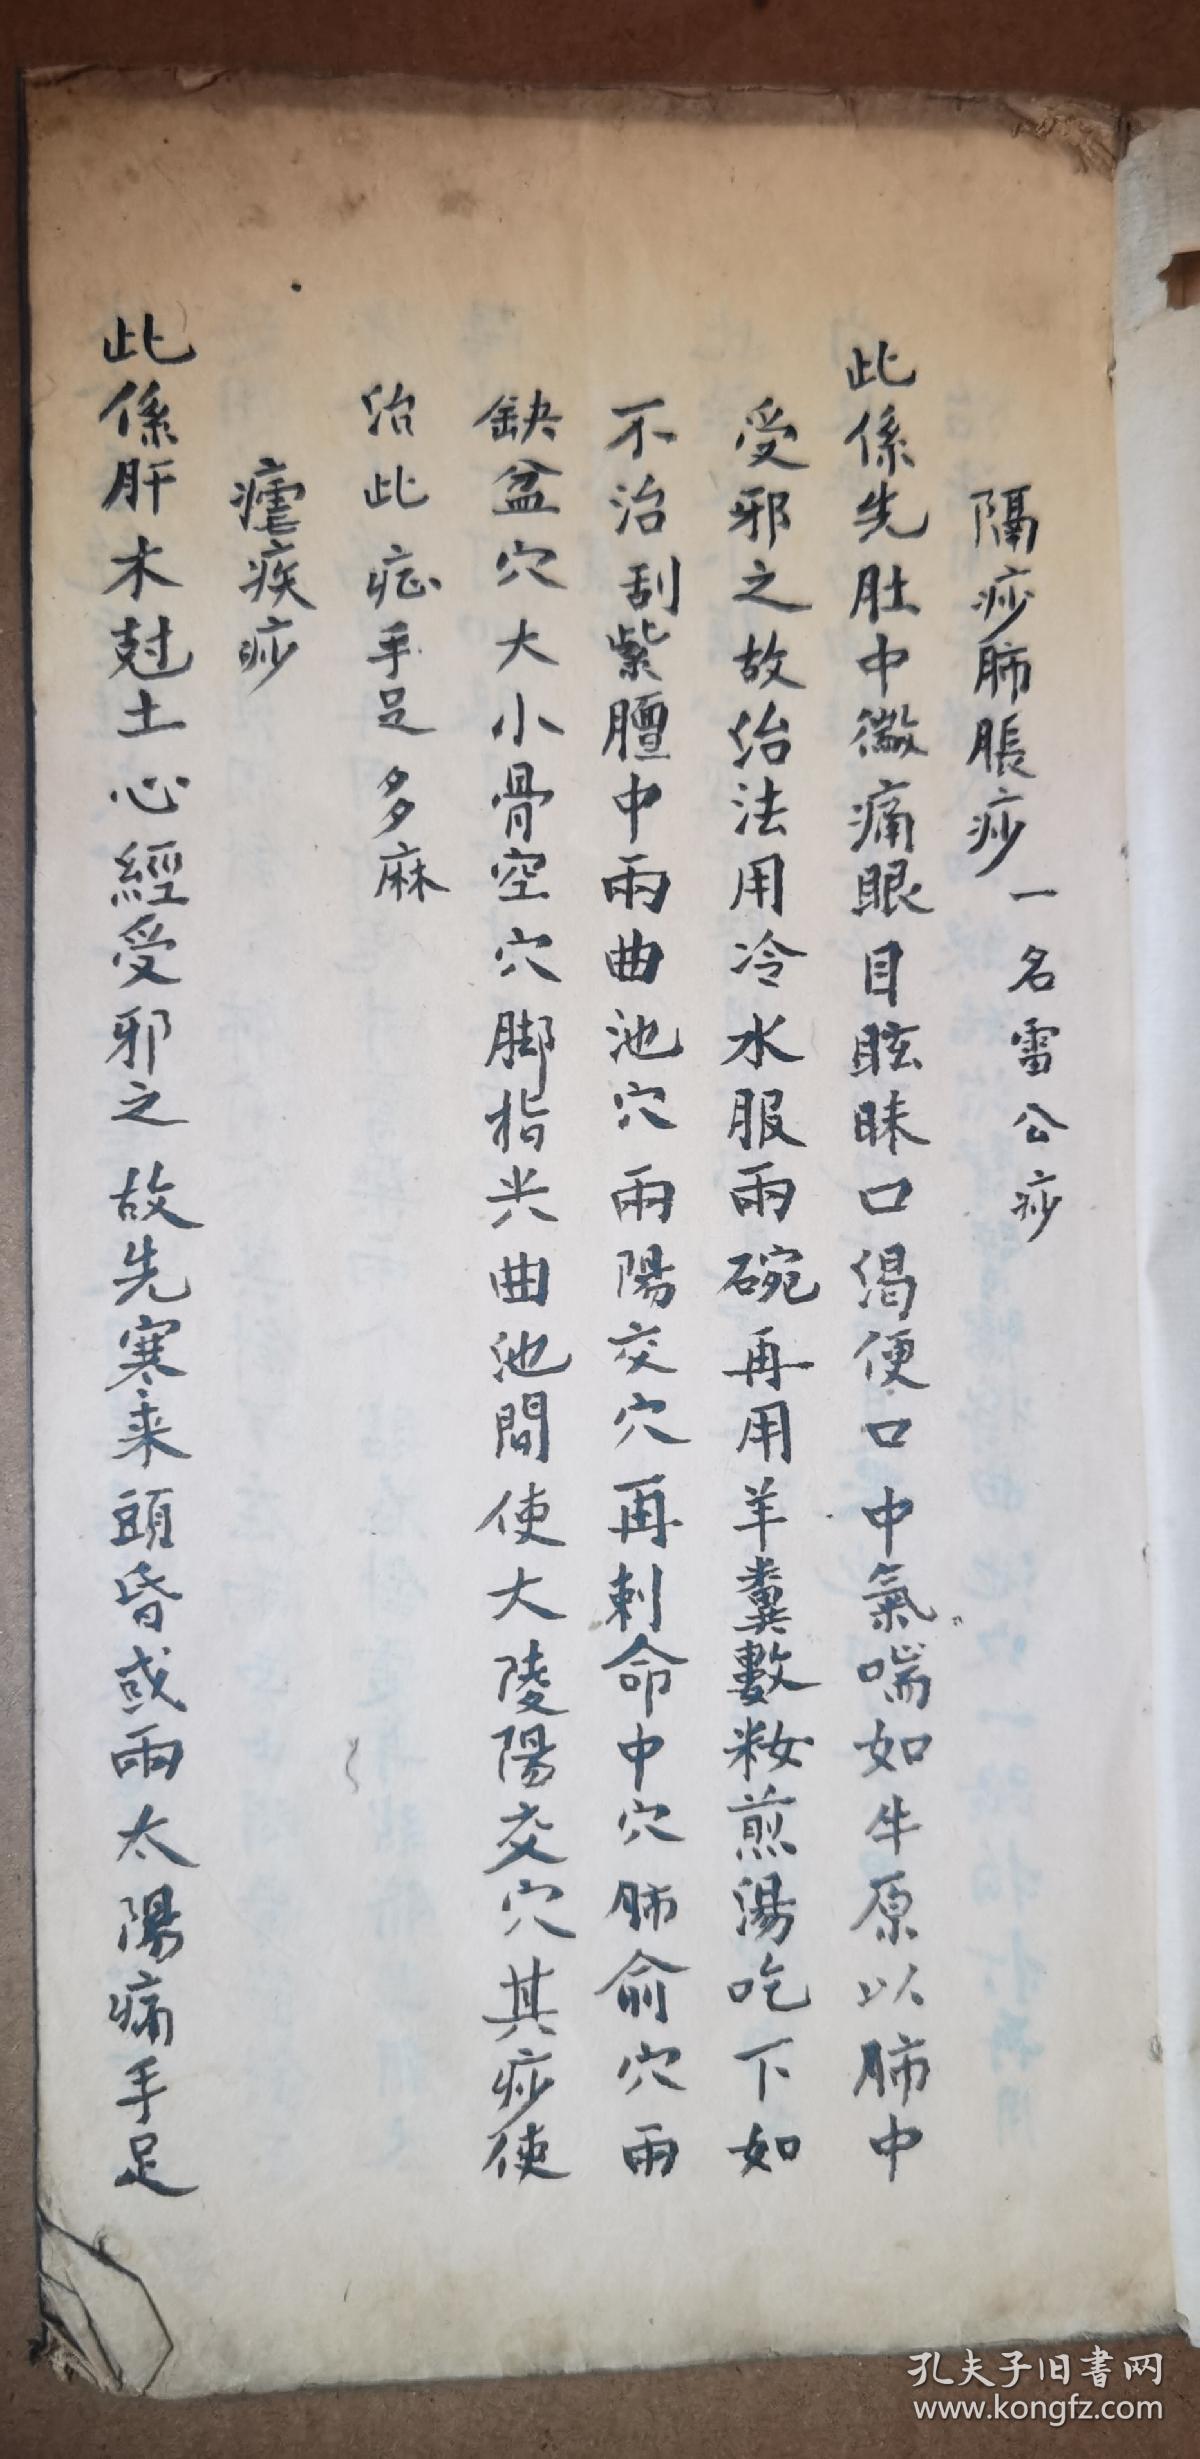 隔痧肺脹痧一名雷公痧
此係先肚中微痛眼目眩昧口渴便口中氣喘如牛原以肺中
受邪之故治法用冷水服兩碗再用羊糞數籹煎湯吃下如
不治刮紫膻中兩曲池穴兩陽交穴再刺命中穴肺俞穴兩
缺盆穴大小骨空穴脚指尖曲池間使大陵陽交穴其痧使
治此症手足多麻
瘧疾痧
此係肝木尅土心經受邪之故先寒来頭昏或兩太陽痛手足
孔夫子旧書网
www.kongfz.com